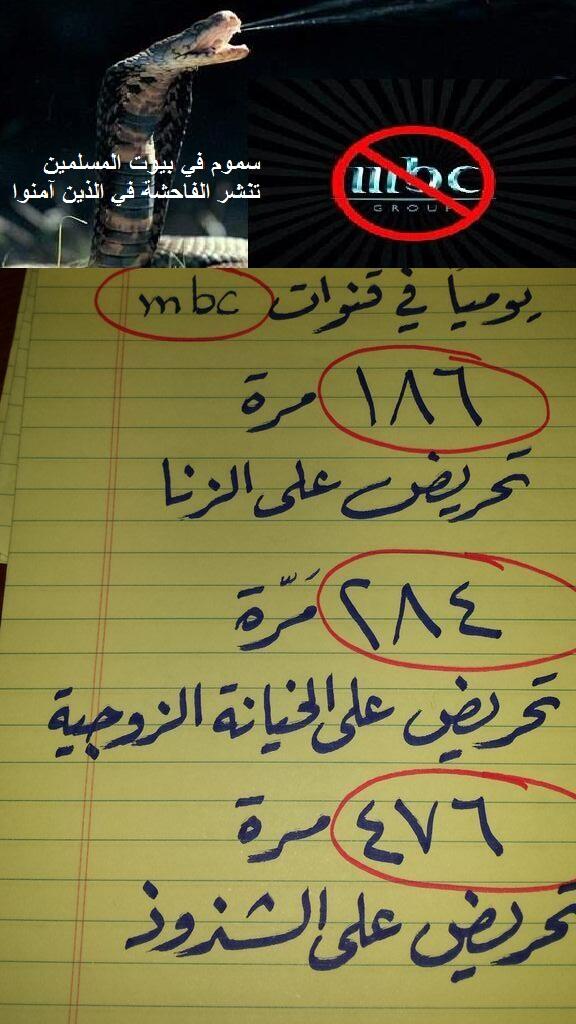 سموم في بيوت المسلمين
تنشر الفاحشة في الذين آمنوا
mbc
GROUP
يومياً في قنوات mbc
١٨٦ مرة
تحريض على الزنا
٢٨٤ مَرّة
تحريض على الخيانة الزوجية
٤٧٦ مرة
تحريض على الشذوذ